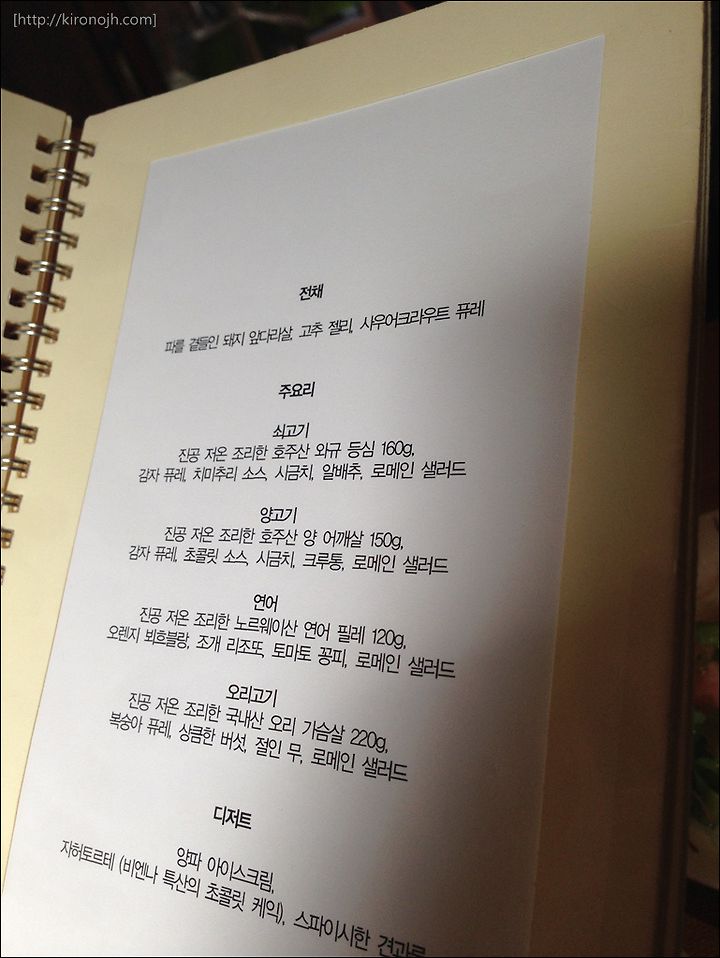 [http://kironojh.com]
전채
파를 곁들인 돼지 앞다리살, 고추 젤리, 사우어크라우트 퓨레
주요리
쇠고기
진공 저온 조리한 호주산 와규 등심 160g,
감자 퓨레, 치미추리 소스, 시금치, 알배추, 로메인 샐러드
양고기
진공 저온 조리한 호주산 양 어깨살 150g,
감자 퓨레, 초콜릿 소스, 시금치, 크루통, 로메인 샐러드
연어
진공 저온 조리한 노르웨이산 연어 필레 120g,
오렌지 뵈흐블랑, 조개 리조또, 토마토 꽁피, 로메인 샐러드
오리고기
진공 저온 조리한 국내산 오리 가슴살 220g,
복숭아 퓨레, 상큼한 버섯, 절인 무, 로메인 샐러드
디저트
양파 아이스크림,
자허토르테 (비엔나 특산의 초콜릿 케익), 스파이시한 견과류